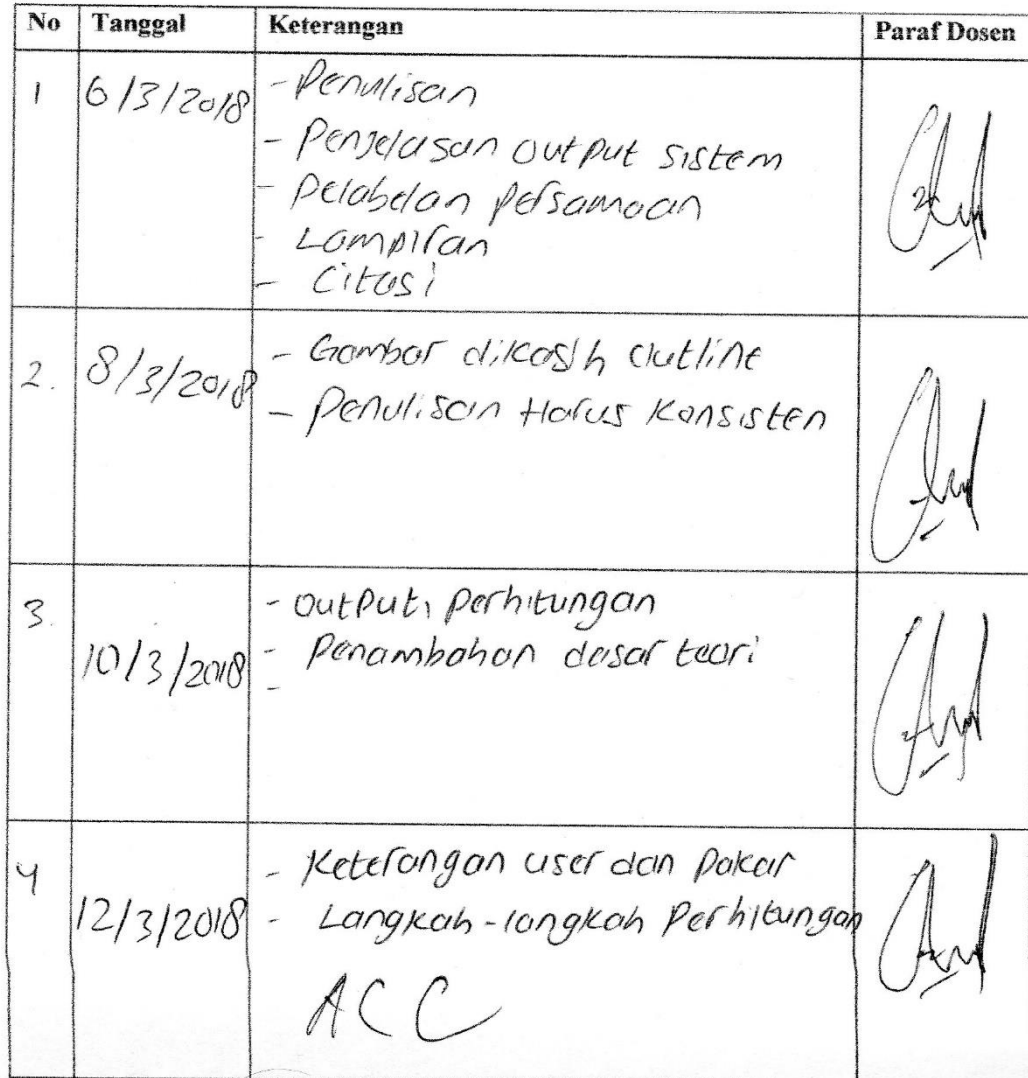 No Tanggal Keterangan Paraf Dosen
1 6/3/2018 - Penulisan
- Penjelasan output sistem
- Pelabelan persamaan
- Lampiran
- Citasi
2. 8/3/2018 - Gambar dikasih outline
- Penulisan Harus Konsisten
3. 10/3/2018 - Output, perhitungan
- Penambahan dasar teori
-
4 12/3/2018 - Keterangan user dan Pakar
- Langkah-langkah Perhitungan
ACC